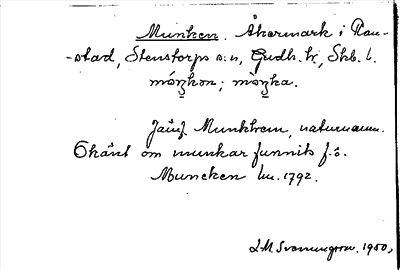 Munken. Åkermark i Ran-
-stad, Stenstorps s:n, Gudh. h., Skb. l.
Jämf. Munkhem, naturnamn.
Okänt om munkar funnits f.ö.
Muncken lm. 1792.
L M Svenungsson. 1950,